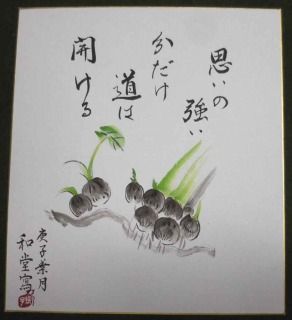 思いの
強い
分だけ
道は
開ける
庚子葉月
和堂寫